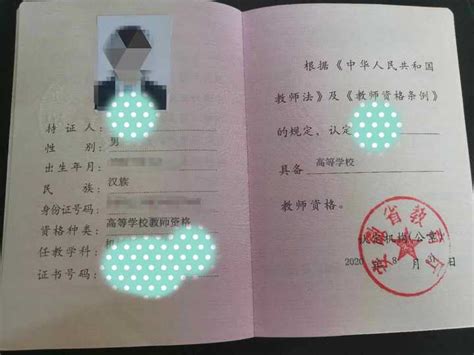 持 证 人：
性 别：男
出生年月：
民 族：汉族
身份证号码：
资格种类：高等学校教师资格
任教学科：
证书号码：
根据《中华人民共和国
教师法》及《教师资格条例》
的规定，认定
具备 高等学校
教师资格。
认定机构（公章）
2020 年 8 月